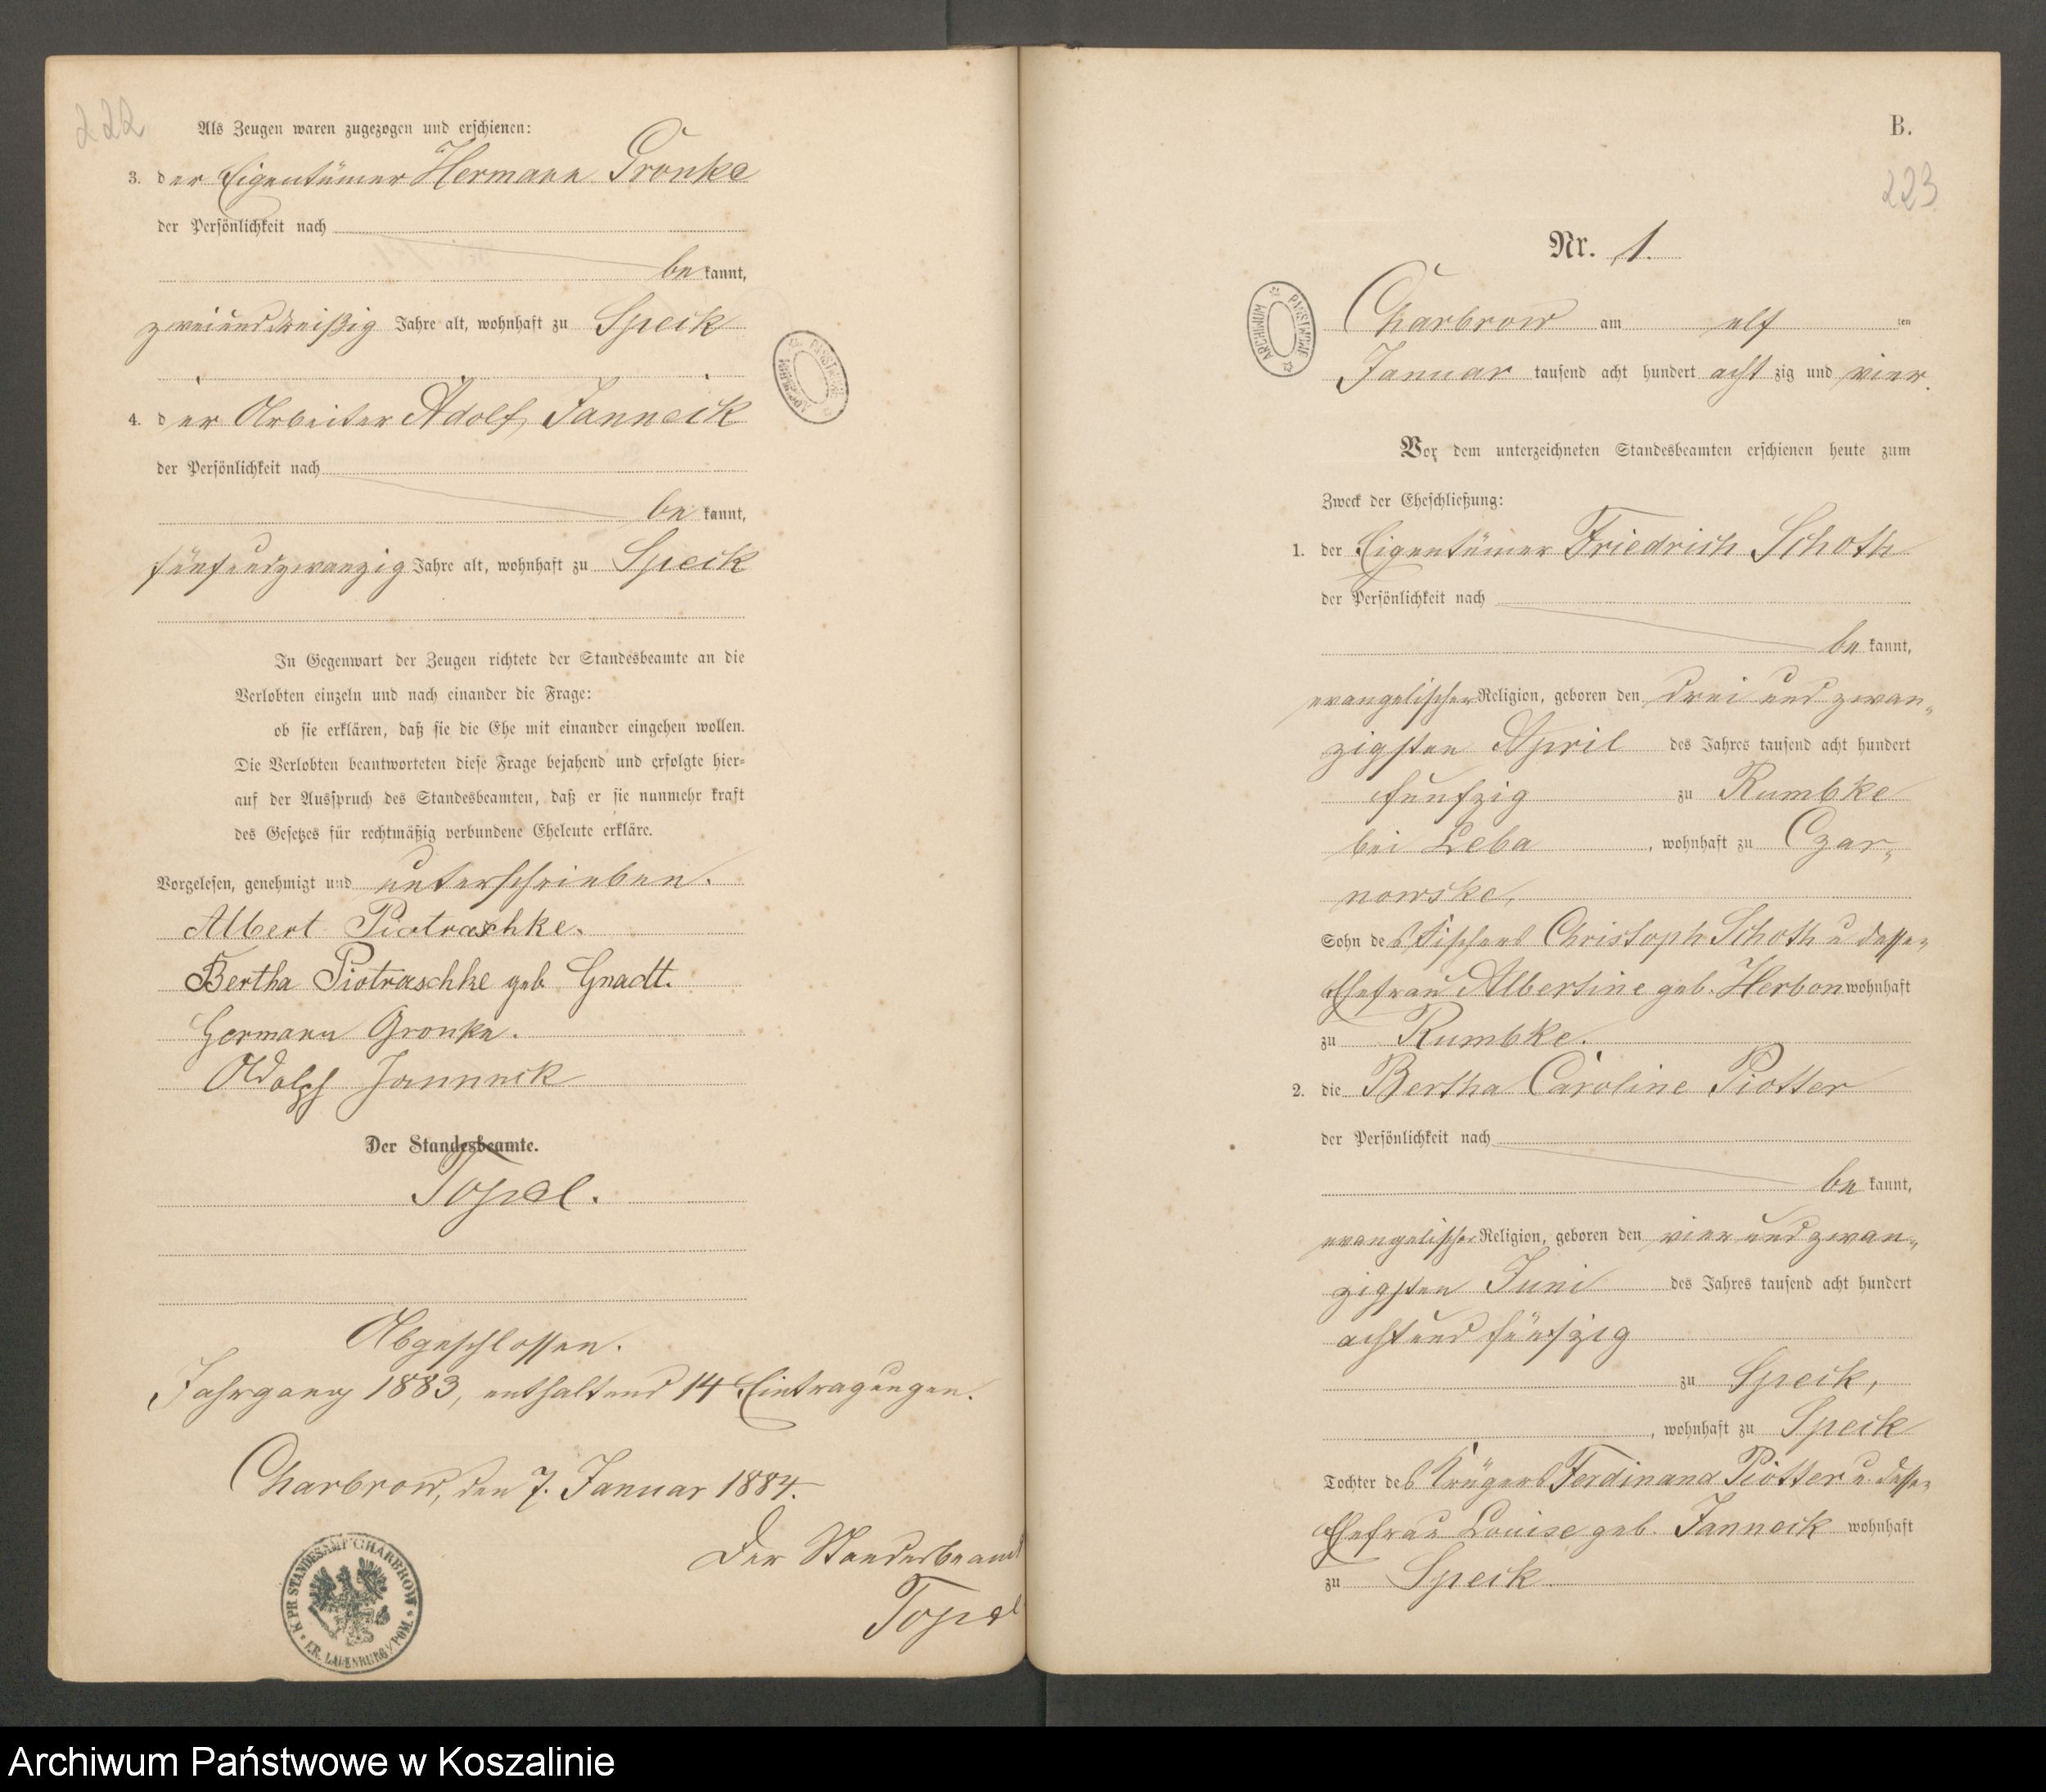 222
Als Zeugen waren zugezogen und erschienen:
3. der Eigentümer Hermann Gronke
der Persönlichkeit nach
bekannt,
zweiunddreißig Jahre alt, wohnhaft zu Speck
4. der Arbeiter Adolf Janneck
der Persönlichkeit nach
bekannt,
fünfundzwanzig Jahre alt, wohnhaft zu Speck
In Gegenwart der Zeugen richtete der Standesbeamte an die
Verlobten einzeln und nach einander die Frage:
ob sie erklären, daß sie die Ehe mit einander eingehen wollen.
Die Verlobten beantworteten diese Frage bejahend und erfolgte hier-
auf der Ausspruch des Standesbeamten, daß er sie nunmehr kraft
des Gesetzes für rechtmäßig verbundene Eheleute erkläre.
Vorgelesen, genehmigt und unterschrieben.
Albert Piotraschke.
Bertha Piotraschke geb. Gnadt.
Hermann Gronke.
Adolph Janneck
Der Standesbeamte.
Topel.
Abgeschlossen.
Jahrgang 1883, enthaltend 14 Eintragungen.
Charbrow, den 7. Januar 1884.
Der Standesbeamt
Topel
K. PR. STANDESAMT CHARBROW KR. LAUENBURG / POM.
ARCHIWUM PAŃSTWOWE
B.
223
Nr. 1.
ARCHIWUM PAŃSTWOWE
Charbrow am elf ten
Januar tausend acht hundert achtzig und vier.
Vor dem unterzeichneten Standesbeamten erschienen heute zum
Zweck der Eheschließung:
1. der Eigentümer Friedrich Schoth
der Persönlichkeit nach
bekannt,
evangelischer Religion, geboren den drei und zwan-
zigsten April des Jahres tausend acht hundert
fünfzig zu Rumbke
bei Leba, wohnhaft zu Czar-
nowske,
Sohn des Fischers Christoph Schoth u. dessen
Ehefrau Albertine geb. Herbon wohnhaft
zu Rumbke.
2. die Bertha Caroline Piotter
der Persönlichkeit nach
bekannt,
evangelischer Religion, geboren den vier und zwan-
zigsten Juni des Jahres tausend acht hundert
achtund fünfzig
zu Speck,
, wohnhaft zu Speck
Tochter des Krügers Ferdinand Piotter u. dessen
Ehefrau Louise geb. Janneck wohnhaft
zu Speck
Archiwum Państwowe w Koszalinie